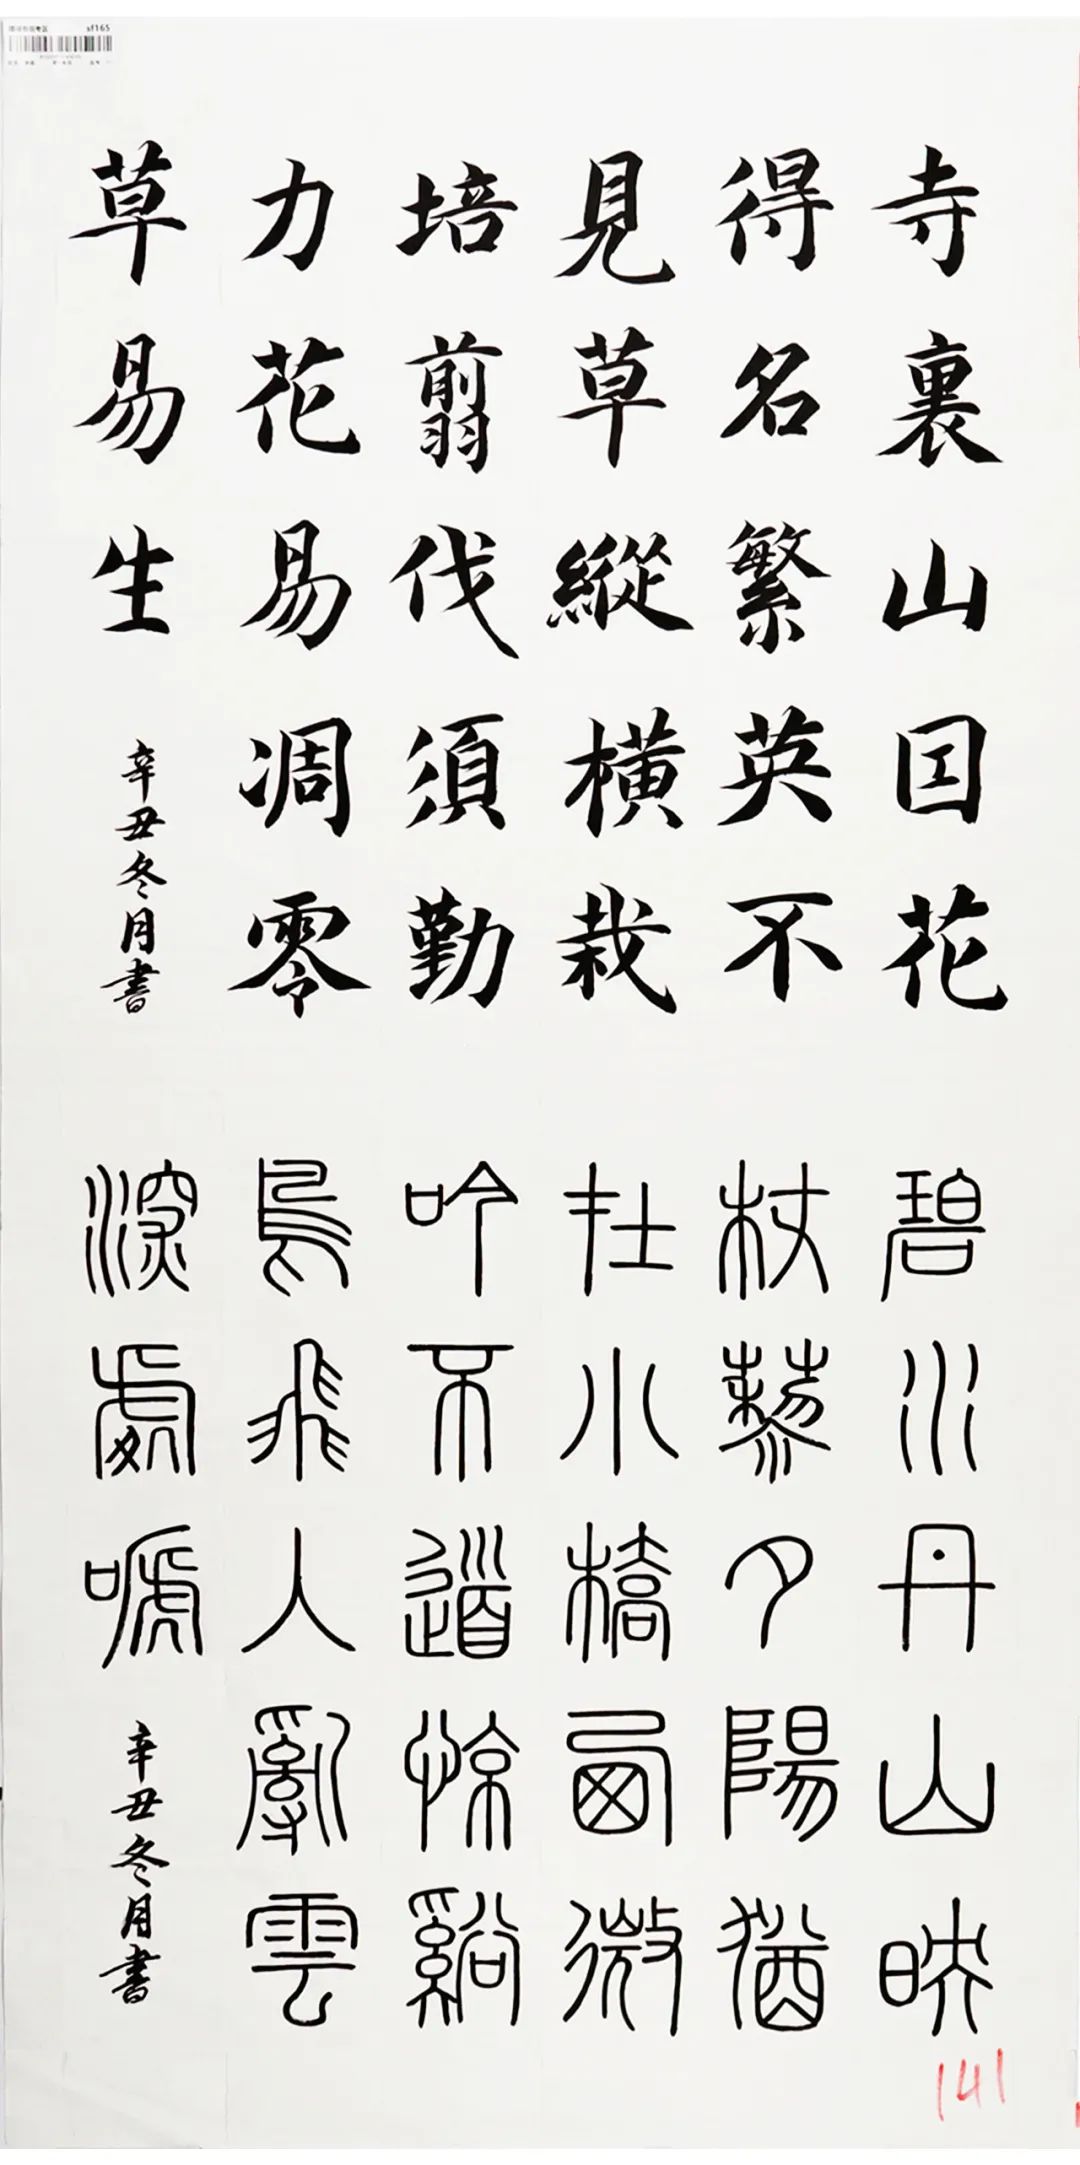 sf165
寺裏山囙花
得名繁英不
見草縱橫栽
培翦伐須勤
力花易凋零
草易生
辛丑冬月書
碧水丹山映
杖藜夕陽猶
在小橋西微
吟不道惊谿
鳥飛人亂雲
深處嗁
辛丑冬月書
141